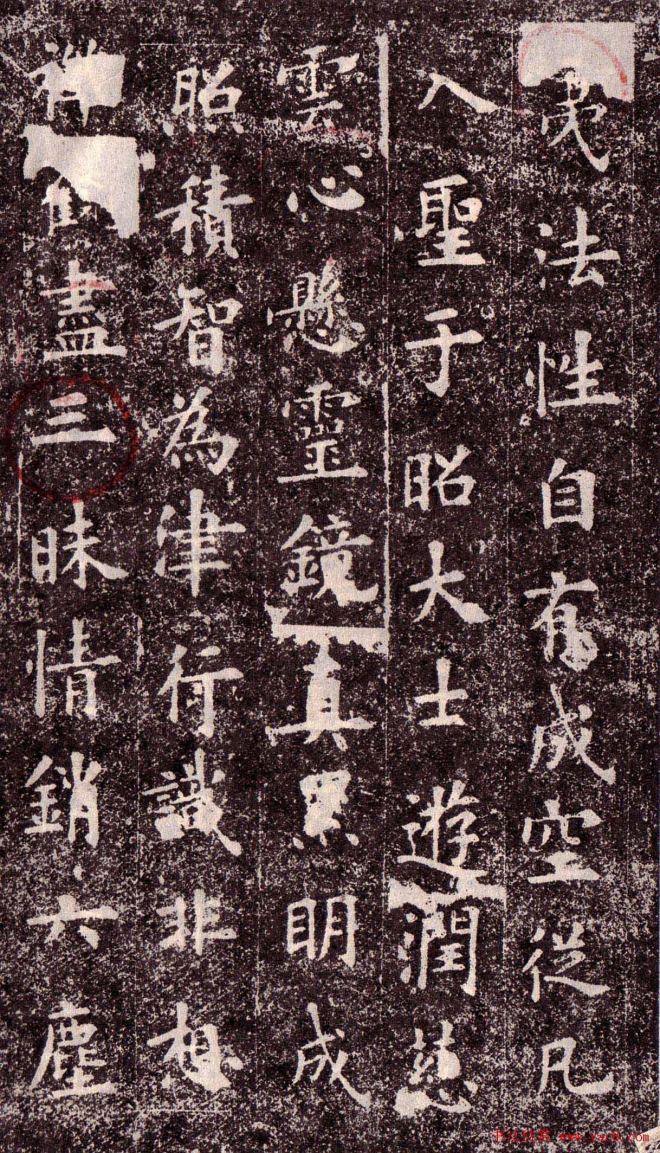 法性自有成空從凡
入聖于昭大士遊潤慈
雲心懸靈鏡真累明成
照積智為津行識非想
盡三昧情銷六塵